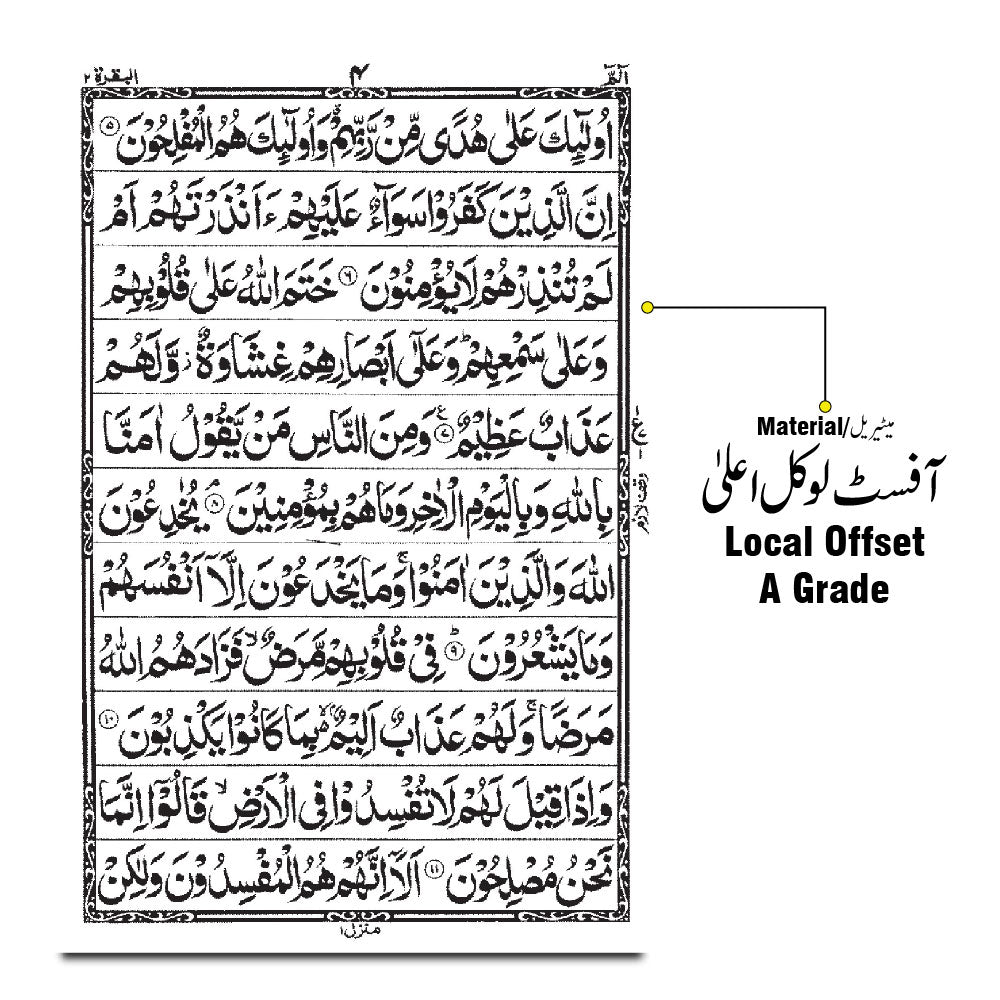 الٓمّٓ ۴ البقرة ۲
اُولٰٓئِكَ عَلٰى هُدًى مِّنْ رَّبِّهِمْ ۗ وَاُولٰٓئِكَ هُمُ الْمُفْلِحُوْنَ ۝۵
اِنَّ الَّذِيْنَ كَفَرُوْا سَوَآءٌ عَلَيْهِمْ ءَاَنْذَرْتَهُمْ اَمْ
لَمْ تُنْذِرْهُمْ لَا يُؤْمِنُوْنَ ۝۶ خَتَمَ اللّٰهُ عَلٰى قُلُوْبِهِمْ
وَعَلٰى سَمْعِهِمْ ؕ وَعَلٰٓى اَبْصَارِهِمْ غِشَاوَةٌ ؗ وَّلَهُمْ
عَذَابٌ عَظِيْمٌ ۝۷ ع وَمِنَ النَّاسِ مَنْ يَّقُوْلُ اٰمَنَّا
بِاللّٰهِ وَبِالْيَوْمِ الْاٰخِرِ وَمَا هُمْ بِمُؤْمِنِيْنَ ۝۸ يُخٰدِعُوْنَ
اللّٰهَ وَالَّذِيْنَ اٰمَنُوْا ۚ وَمَا يَخْدَعُوْنَ اِلَّآ اَنْفُسَهُمْ
وَمَا يَشْعُرُوْنَ ۝۹ؕ فِيْ قُلُوْبِهِمْ مَّرَضٌ ۙ فَزَادَهُمُ اللّٰهُ
مَرَضًا ۚ وَلَهُمْ عَذَابٌ اَلِيْمٌ ۢ ۙ بِمَا كَانُوْا يَكْذِبُوْنَ ۝۱۰
وَاِذَا قِيْلَ لَهُمْ لَا تُفْسِدُوْا فِى الْاَرْضِ ۙ قَالُوْٓا اِنَّمَا
نَحْنُ مُصْلِحُوْنَ ۝۱۱ اَلَآ اِنَّهُمْ هُمُ الْمُفْسِدُوْنَ وَلٰكِنْ
منزل ۱
وقف لازم
Material/میٹیریل
آفسٹ لوکل اعلیٰ
Local Offset
A Grade